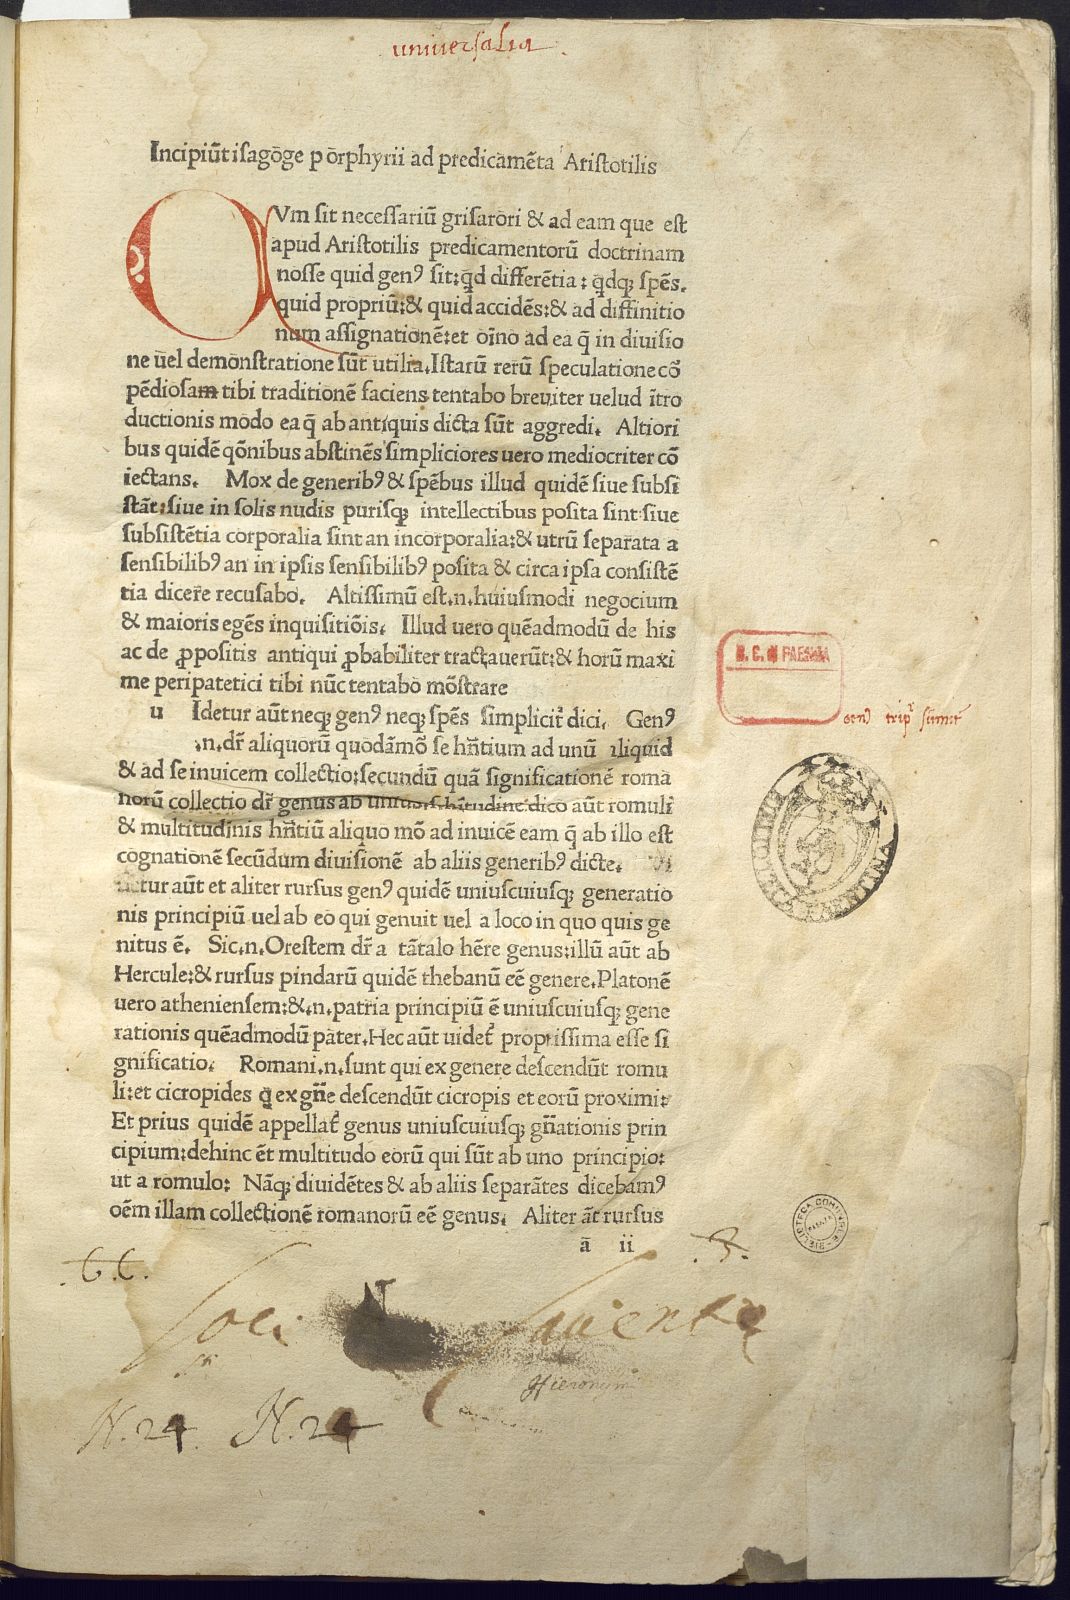 universalia
Incipiūt isagōge porphyrii ad predicamēta Aristotilis
QVm sit necessariū grisarori & ad eam que est
apud Aristotilis predicamentorū doctrinam
nosse quid genꝰ sit: qd differētia: qdqꝫ spēs.
quid propriū: & quid accidēs: & ad diffinitio
num assignationē: et oīno ad ea q̄ in diuisio
ne uel demonstratione sūt utilia. Istarū rerū speculatione cō
pēdiosam tibi traditionē faciens tentabo breuiter uelud ītro
ductionis modo ea q̄ ab antiquis dicta sūt aggredi. Altiori
bus quidē qōnibus abstinēs simpliciores uero mediocriter cō
iectans. Mox de generibꝰ & spēbus illud quidē siue subsi
stāt: siue in solis nudis purisqꝫ intellectibus posita sint siue
subsistētia corporalia sint an incorporalia: & utrū separata a
sensibilibꝰ an in ipsis sensibilibꝰ posita & circa ipsa consistē
tia dicere recusabo. Altissimū est .n. huiusmodi negocium
& maioris egēs inquisitiōis. Illud uero quēadmodū de his
ac de ꝓpositis antiqui ꝓbabiliter tractauerūt: & horū maxi
me peripatetici tibi nūc tentabo mōstrare
u Idetur aūt neqꝫ genꝰ neqꝫ spēs simplicit̉ dici. Genꝰ
.n. dr̄ aliquorū quodāmō se hn̄tium ad unū aliquid
& ad se inuicem collectio: secundū quā significationē roma
norū collectio dr̄ genus ab unius habitudine dico aūt romuli
& multitudinis hn̄tiū aliquo mō ad inuicē eam q̄ ab illo est
cognationē secūdum diuisionē ab aliis generibꝰ dicte. Di
citur aūt et aliter rursus genꝰ quidē uniuscuiusqꝫ generatio
nis principiū uel ab eo qui genuit uel a loco in quo quis ge
nitus ē. Sic .n. Orestem dr̄ a tātalo hēre genus: illū aūt ab
Hercule: & rursus pindarū quidē thebanū eē genere. Platonē
uero atheniensem: & .n. patria principiū ē uniuscuiusqꝫ gene
rationis quēadmodū pater. Hec aūt uidet̉ proptissima esse si
gnificatio. Romani .n. sunt qui ex genere descendūt romu
li: et cicropides q̄ ex gn̄e descendūt cicropis et eorū proximi:
Et prius quidē appellat̉ genus uniuscuiusqꝫ gn̄ationis prin
cipium: dehinc ēt multitudo eorū qui sūt ab uno principio:
ut a romulo: Nāqꝫ diuidētes & ab aliis separātes dicebamꝰ
oēm illam collectionē romanorū eē genus. Aliter āt rursus
a ii
B. C. di FAENZA
genꝰ tripl̄r sumit̉
FAENTINA
BIBLIOTECA COMUNALE
FAENZA
.C.C.
.3.
Soci
Iauentę
Hieronymi
N. 24. N. 24